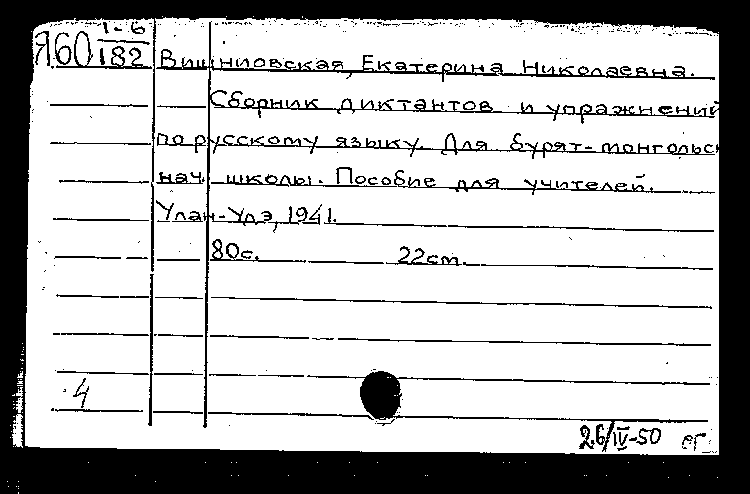 Я60 1-6/182
Вишниовская, Екатерина Николаевна.
Сборник диктантов и упражнений
по русскому языку. Для бурят-монгольск
нач. школы. Пособие для учителей.
Улан-Удэ, 1941.
80с. 22см.
4
26/IV-50